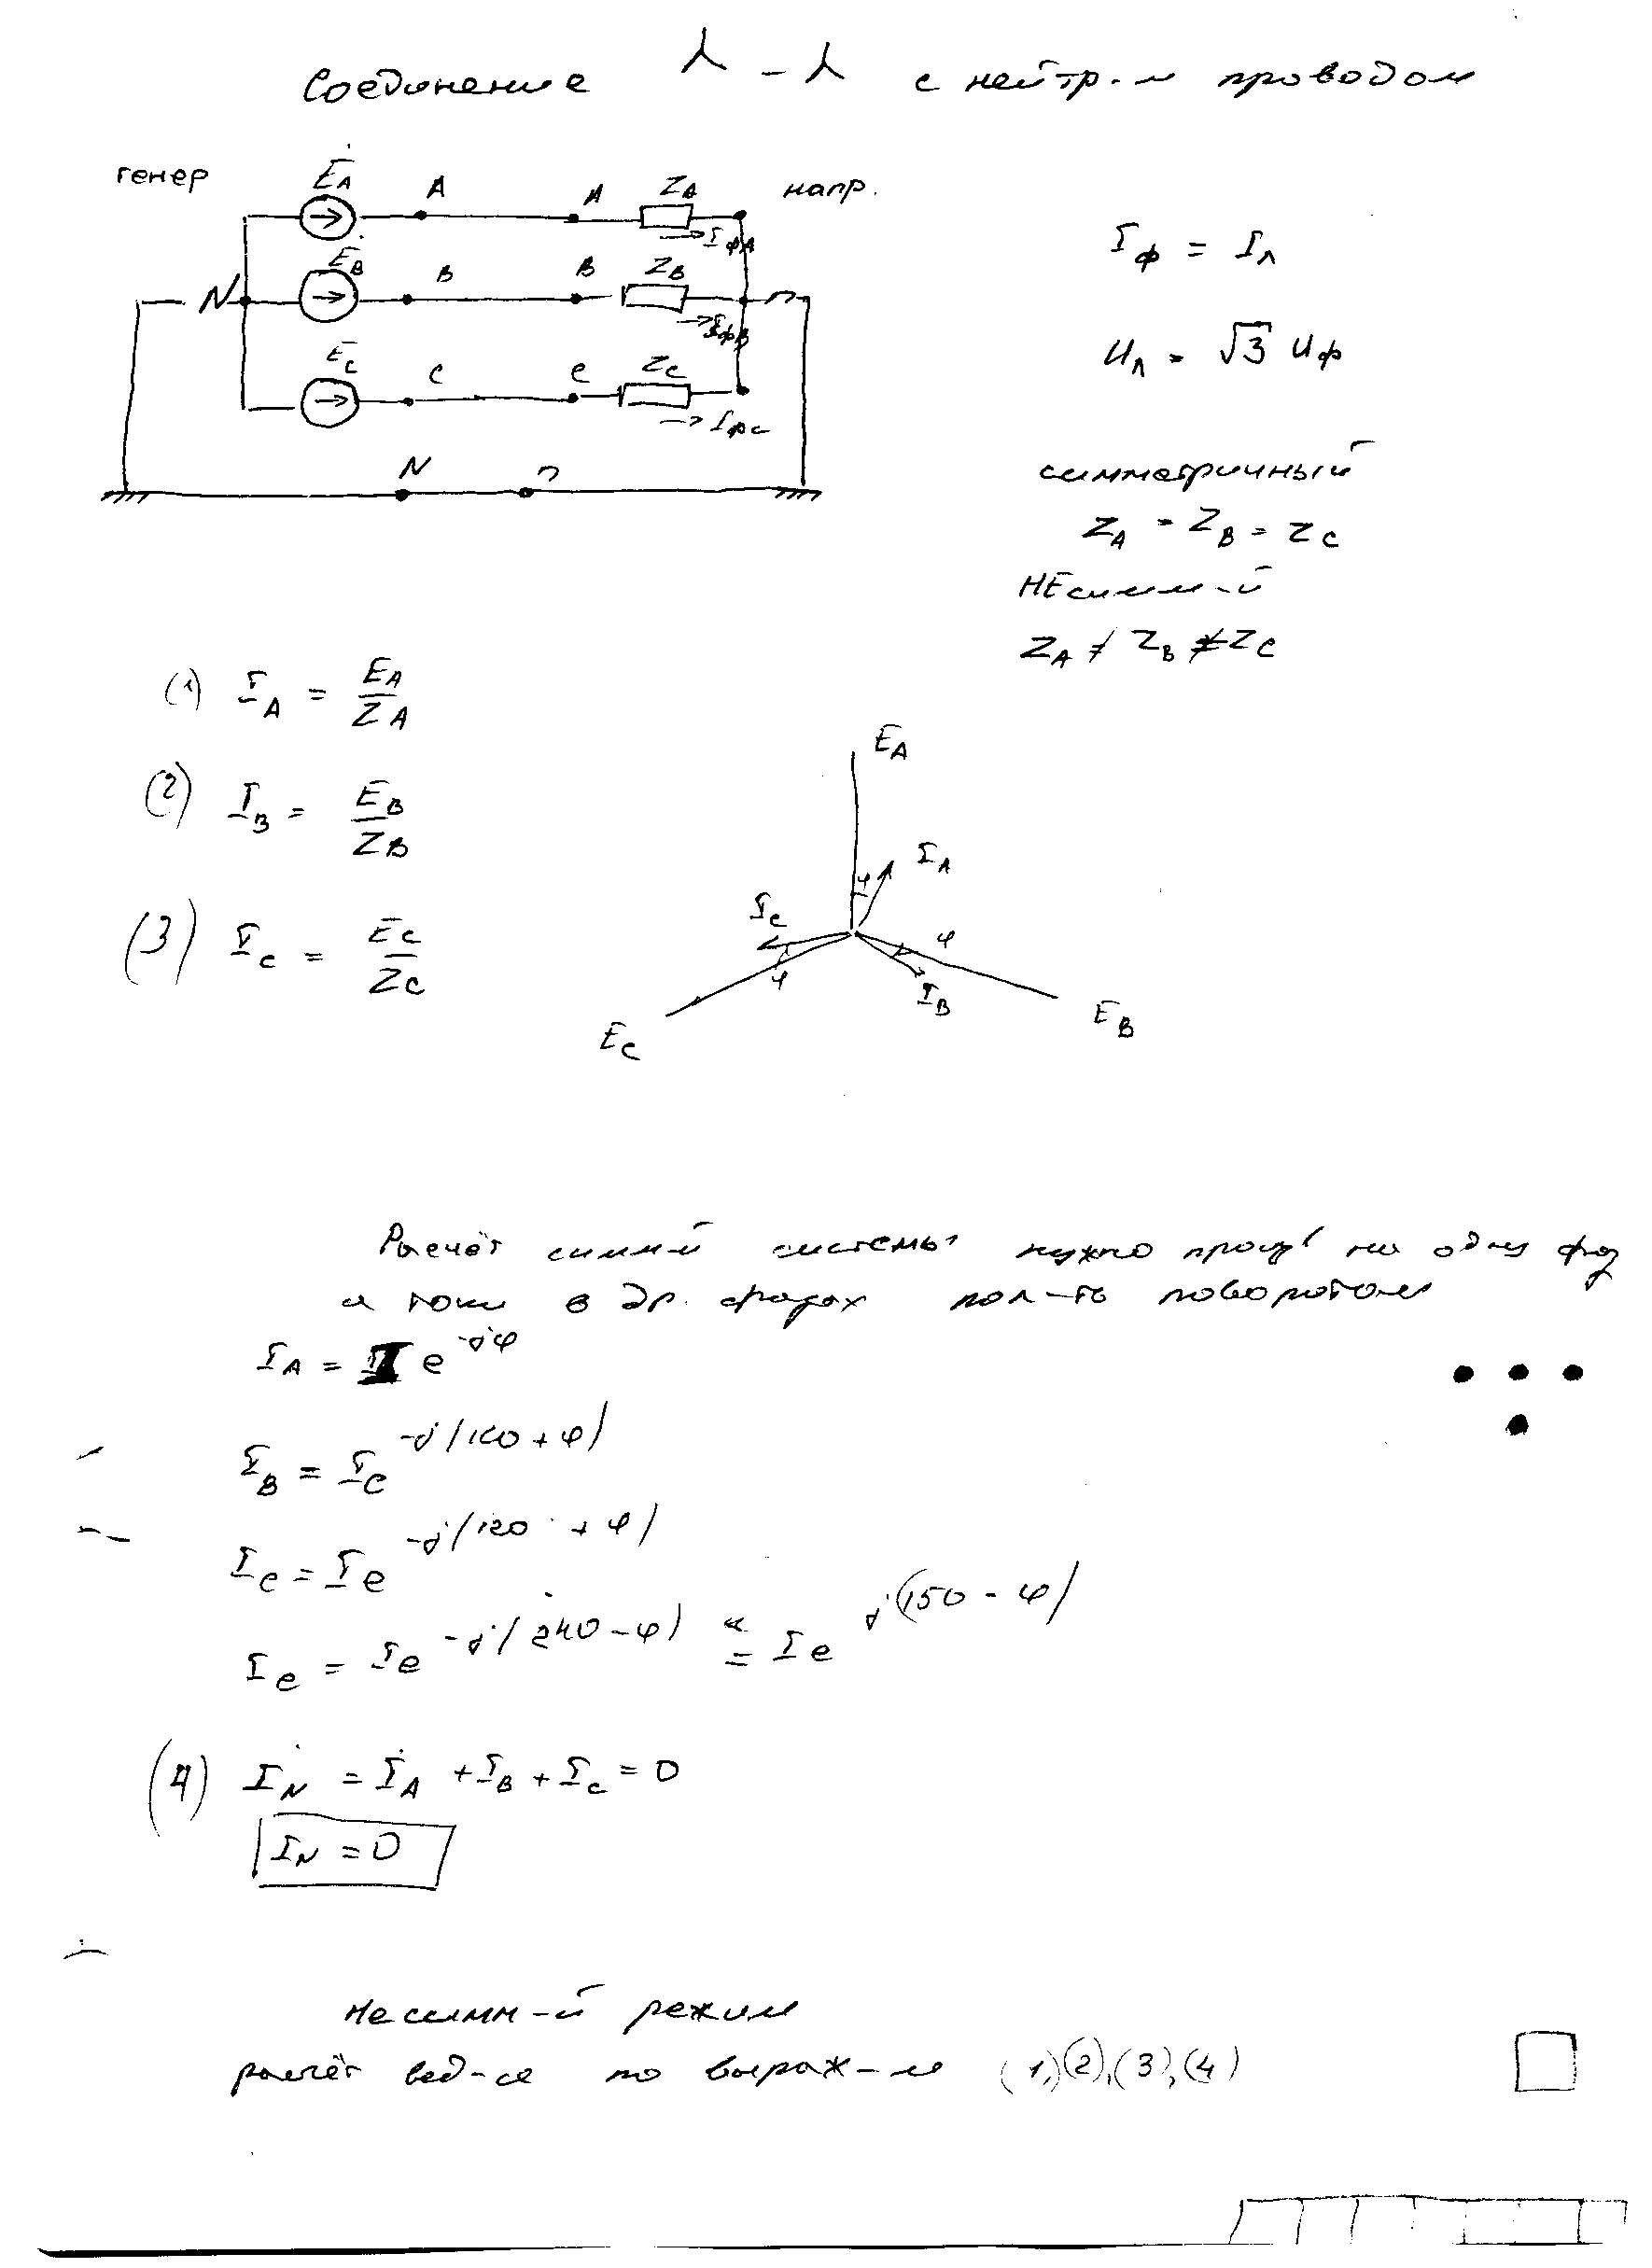 Соединение Y - Y с нейтр.-м проводом
генер
напр.
E_A A A Z_A
I_фA
E_B B B Z_B
N n
I_фB
E_C C C Z_C
I_фC
N n
I_ф = I_л
U_л = √3 U_ф
симметричный
Z_A = Z_B = Z_C
НЕсимм-й
Z_A ≠ Z_B ≠ Z_C
(1) I_A = E_A / Z_A
(2) I_B = E_B / Z_B
(3) I_C = E_C / Z_C
E_A
I_A
φ
I_C
φ
φ
I_B
E_C
E_B
Расчёт симм-й системы нужно произв на одну фаз
а токи в др. фазах пол-ть поворотом
I_A = I e^{-jφ}
I_B = I e^{-j(120 + φ)}
I_C = I e^{-j(120 + φ)}
I_C = I e^{-j(240 - φ)} = I e^{j(150 - φ)}
(4) I_N = I_A + I_B + I_C = 0
I_N = 0
Несимм-й режим
расчёт вед-ся по выраж-м (1), (2), (3), (4)